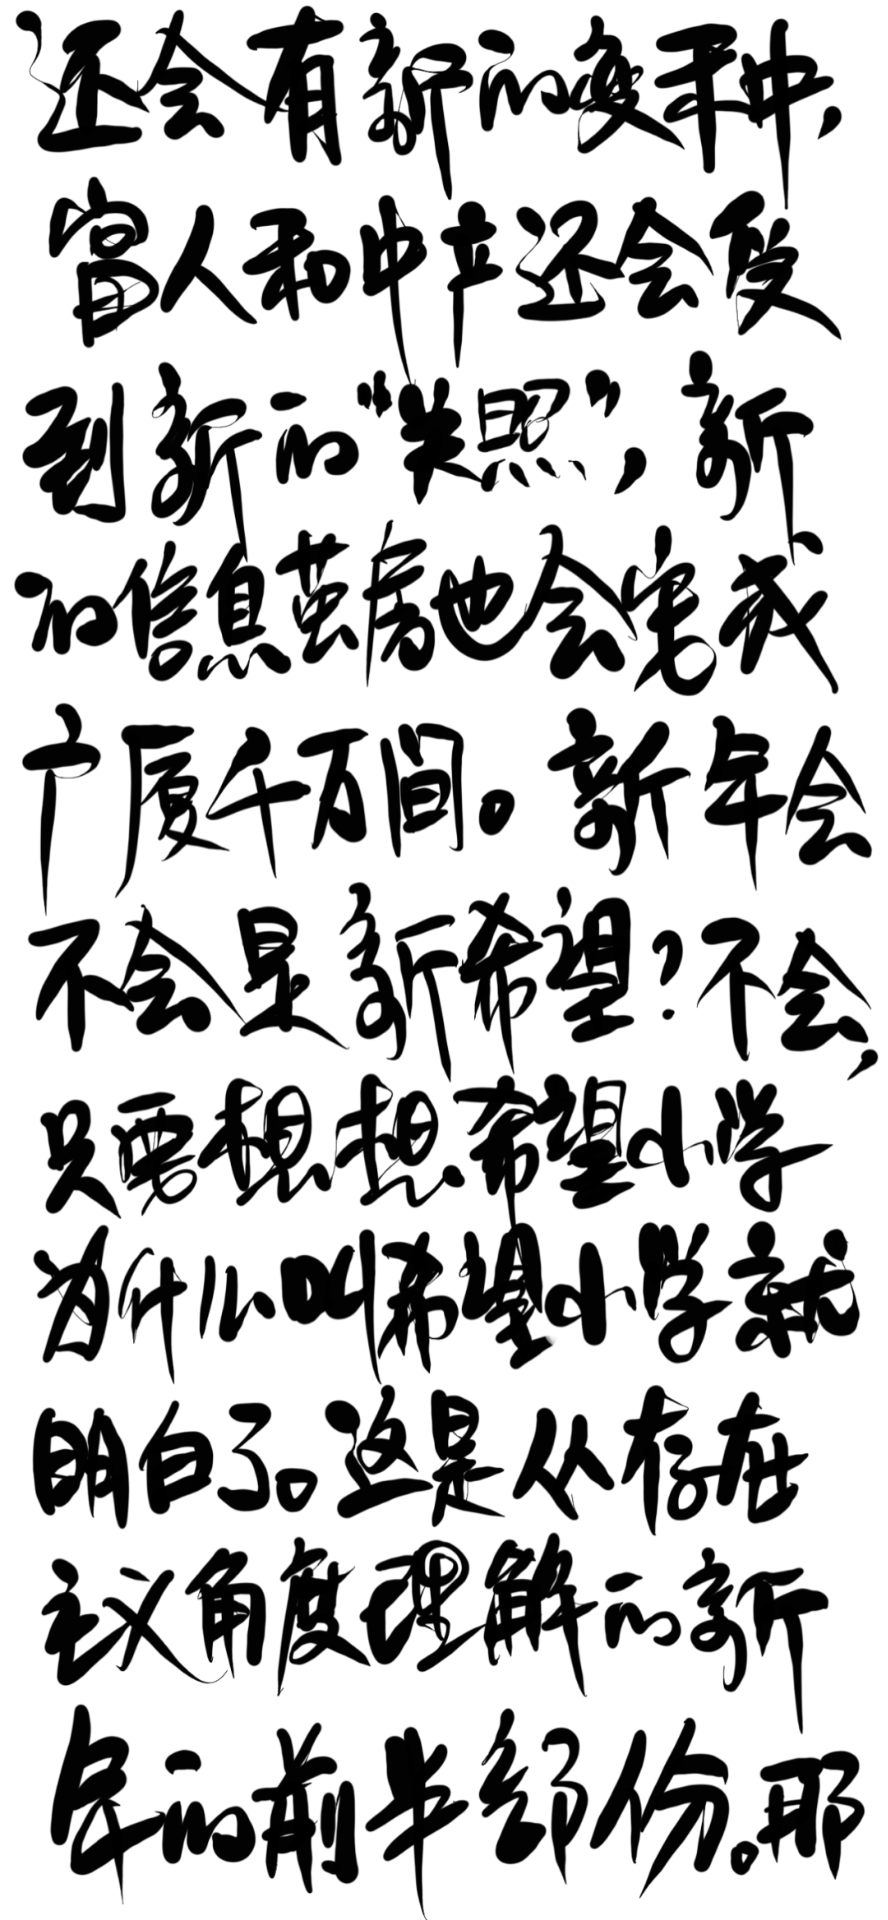 还会有新的变种,
富人和中产还会受
到新的“关照”,新
的信息茧房也会完成
广厦千万间。新年会
不会是新希望?不会,
只要想想希望小学
为什么叫希望小学就
明白了。这是从存在
主义角度理解的新
年的前半部份。那